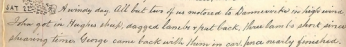 SAT 12 A windy day. All but two of us motored to Dannevirke in high wind
John got in Hughes sheep, dagged lambs & put back, three lambs short since
shearing time George came back with them in car for a nearly finished,